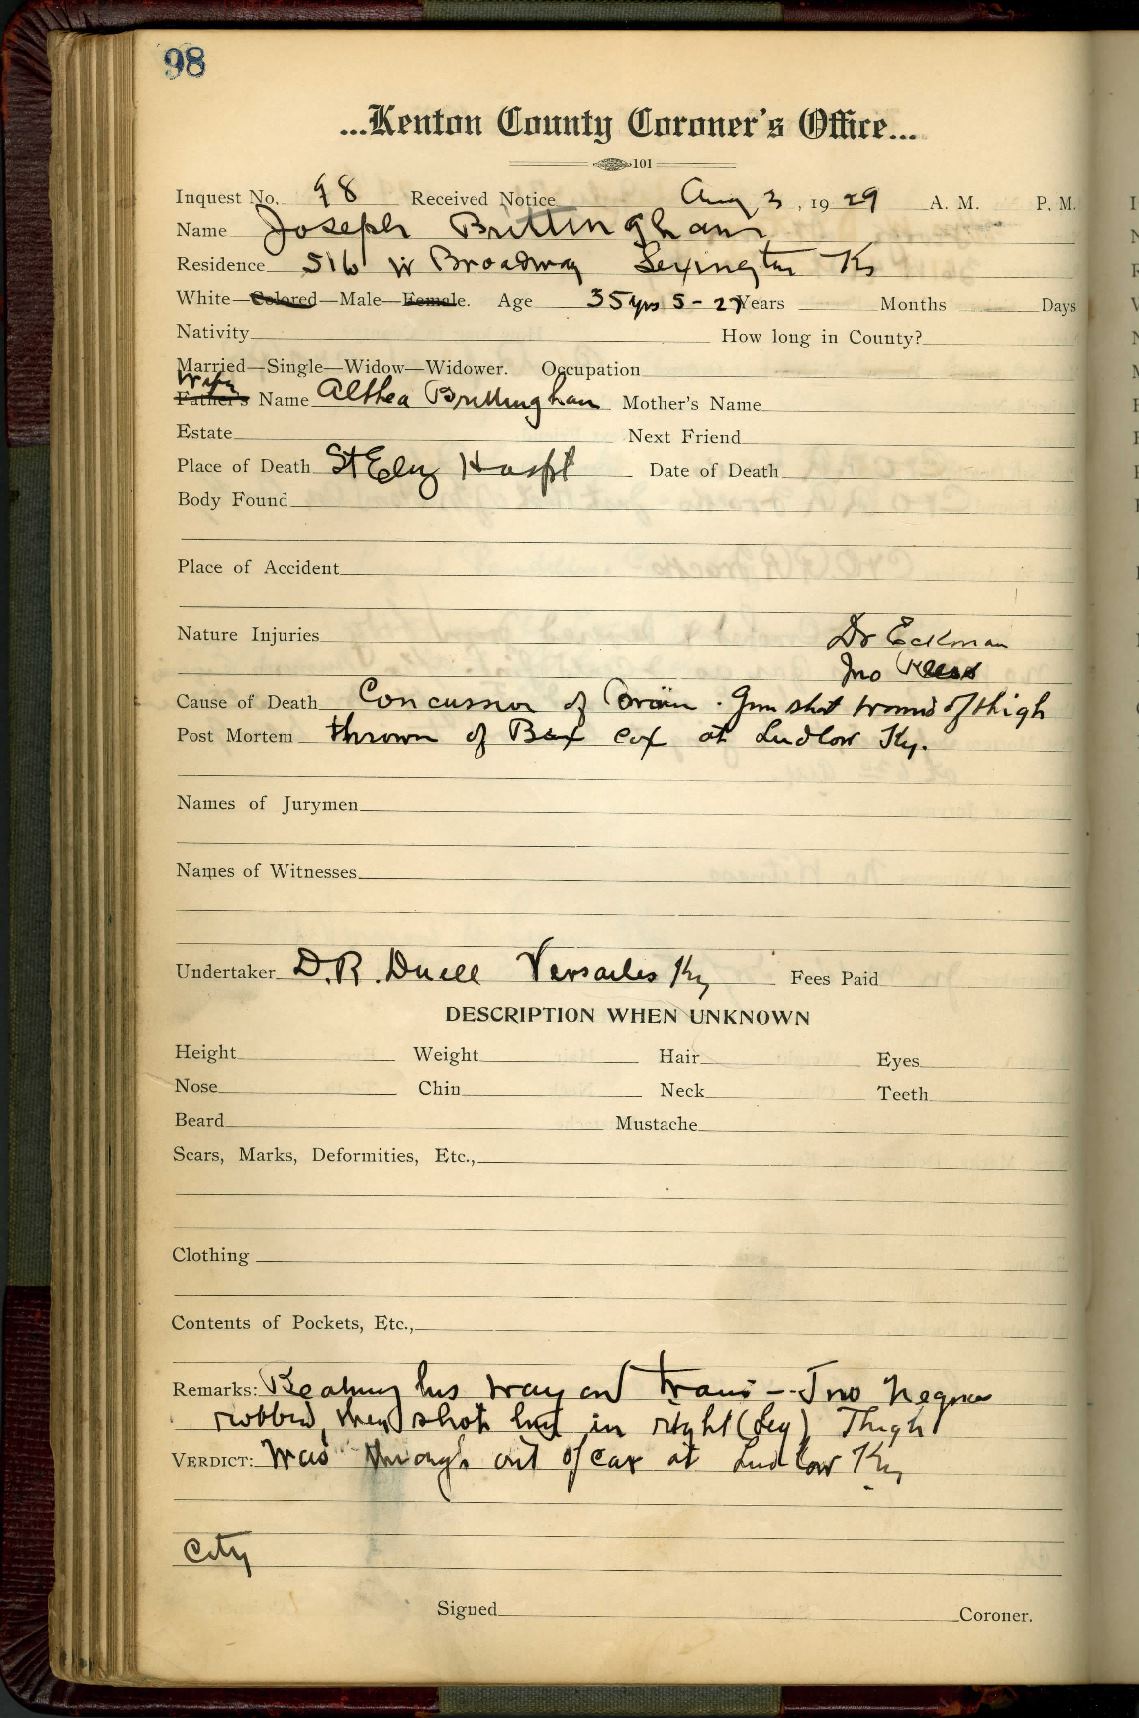 98
...Kenton County Coroner's Office...
101
Inquest No. 98 Received Notice Aug 3, 1929 A. M. P. M.
Name Joseph Brittingham
Residence 516 W Broadway Lexington Ky
White—Colored—Male—Female. Age 35 yrs 5 - 27 Years Months Days
Nativity How long in County?
Married—Single—Widow—Widower. Occupation
Wife
Father's Name Althea Brittingham Mother's Name
Estate Next Friend
Place of Death St Eliz Hospt Date of Death
Body Found
Place of Accident
Dr Eckman
Nature Injuries
Jno
Cause of Death Concussion of Brain . Gun shot wound of thigh
Post Mortem thrown of Box car at Ludlow Ky.
Names of Jurymen
Names of Witnesses
Undertaker D.R. Duell Versailes Ky Fees Paid
DESCRIPTION WHEN UNKNOWN
Height Weight Hair Eyes
Nose Chin Neck Teeth
Beard Mustache
Scars, Marks, Deformities, Etc.,
Clothing
Contents of Pockets, Etc.,
Remarks: Beating his way on train -- Two Negroes
robbed, then shot him in right (Leg) Thigh
VERDICT: Was through out of car at Ludlow Ky
City
Signed Coroner.